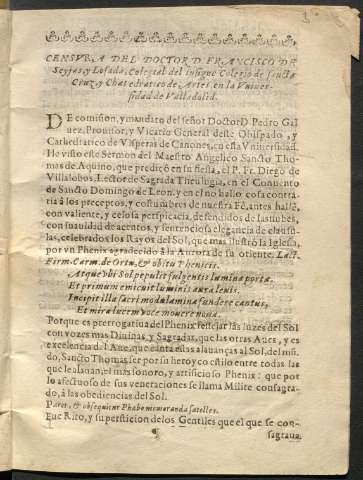 CENSVRA DEL DOCTOR D. FRANCISCO DE
Seyxas y Losada, Colegial del insigne Colegio de Sancta
Cruz, y Chatedratico de Artes en la Vniuer-
sidad de Valladolid.
DE comision, y mandato del señor Doctor D. Pedro Gal
uez, Prouisor, y Vicario General deste Obispado, y
Cathedratico de Visperas de Canones, en esta Vniuersidad.
He visto este Sermon del Maestro Angelico Sancto Tho-
mas de Aquino, que predicò en su fiesta, el P. Fr. Diego de
Villalobos, Lector de Sagrada Theulugia, en el Conuento
de Sancto Domingo de Leon, y en el no hallo cosa contra-
ria à los preceptos, y costumbres de nuestra Fè, antes hallè,
con valiente, y celosa perspicacia, defendidos de las nubes,
con suauidad de acentos, y sentenciosa elegancia de clausu-
las, celebrados los Rayos del Sol, que mas ilustrò la Iglesia,
por vn Phenix agradecido à la Aurora de su oriente. Lact.
Firm. Carm. de Ortu, & obitu Phenicis.
Atque vbi Sol pepulit fulgentis lumina portæ.
Et primum emicuit luminis aura leuis.
Incipit illa sacri modulamina fundere cantus,
Et mira lucem voce mouere noua.
Porque es prerrogatiua del Phenix festejar las luzes del Sol
con vozes mas Diuinas, y Sagradas, que las otras Aues, y es
excelencia del Aue, que canta estas alauanças al Sol, del mis-
mo, Sancto Thomas ser por su heroyco estilo entre todas las
que le alauan, el mas sonoro, y artificioso Phenix: que por
lo afectuoso de sus veneraciones se llama Milite consagra-
do, à las obediencias del Sol.
Paret, & obsequitur Phæbo memoranda satelles.
Fue Rito, y supersticion de los Gentiles que el que se con-
¶ sagraua